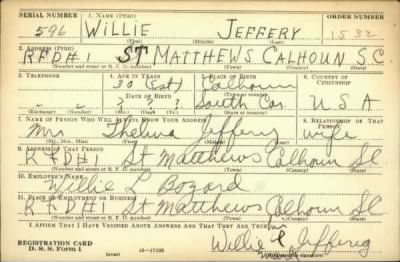 SERIAL NUMBER 1. NAME (Print) ORDER NUMBER
596 WILLIE JEFFERY 1532
(First) (Middle) (Last)
2. ADDRESS (Print)
RFD#1 ST MATTHEWS CALHOUN S.C.
(Number and street or R. F. D. number) (Town) (County) (State)
3. TELEPHONE 4. AGE IN YEARS 5. PLACE OF BIRTH 6. COUNTRY OF CITIZENSHIP
30 (Est) Calhoun
(Town or county)
DATE OF BIRTH
- - ? ? ? South Car. USA
(Exchange) (Number) (Mo.) (Day) (Yr.) (State or country)
7. NAME OF PERSON WHO WILL ALWAYS KNOW YOUR ADDRESS 8. RELATIONSHIP OF THAT PERSON
Mrs Thelma Jeffery wife
(Mr., Mrs., Miss) (First) (Middle) (Last)
9. ADDRESS OF THAT PERSON
RFD#1 St Matthews Calhoun SC
(Number and street or R. F. D. number) (Town) (County) (State)
10. EMPLOYER'S NAME
Willie L Bozard
11. PLACE OF EMPLOYMENT OR BUSINESS
RFD#1 St Matthews Calhoun SC
(Number and street or R. F. D. number) (Town) (County) (State)
I AFFIRM THAT I HAVE VERIFIED ABOVE ANSWERS AND THAT THEY ARE TRUE.
REGISTRATION CARD
D. S. S. Form 1 (over) Willie Jeffery
mark